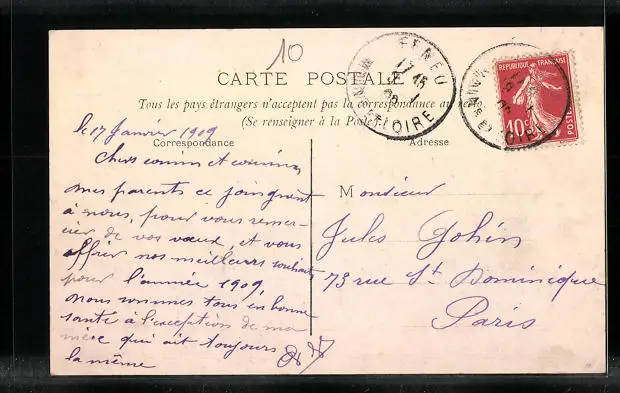 10
CARTE POSTALE
Tous les pays étrangers n'acceptent pas la correspondance au recto
(Se renseigner à la Poste).
Correspondance
Adresse
FENEU
MAINE ET LOIRE
17
REPUBLIQUE FRANÇAISE
10c
POSTES
le 17 Janvier 1909
Chers cousin et cousine
mes parents ce joingnent
à nous, pour vous remer-
cier de vos vœux, et vous
offrir nos meilleurs souhaits
pour l'année 1909
nous sommes tous en bonne
santé à l'exception de ma
mère qui ait toujours
la même
Monsieur
Jules Gohin
73 rue St. Dominique
Paris